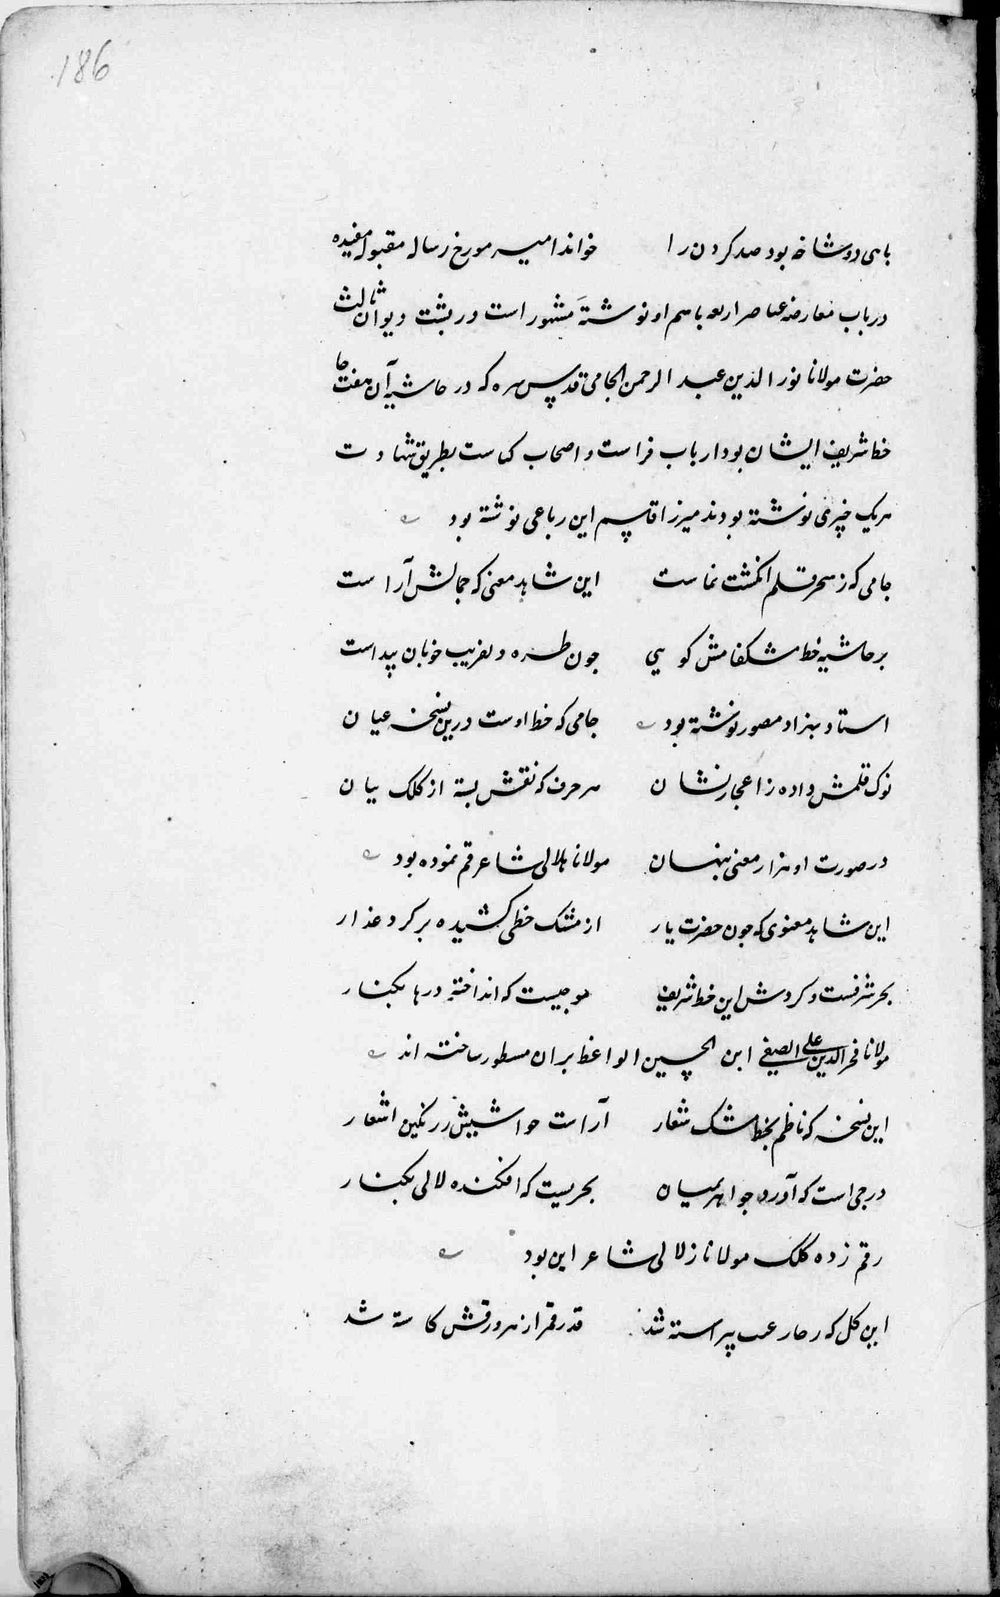 186
باسی دو شاخه بود صد کردن را خواندامیر مورخ رساله مقبول مفیده
در باب معارضه عناصر اربعه باسم او نوشته مشهور است در پشت دیوان ثالث
حضرت مولانا نور الدین عبد الرحمن الجامی قدس سره که در حاشیه آن هفت جا
خط شریف ایشان بود ارباب فراست و اصحاب کیاست بطریق شهادت
هریک چیزی نوشته بودند میرزا قاسم این رباعی نوشته بود
جامی که ز سحر قلم انگشت نماست این شاهد معنی که جمالش آراست
بر حاشیه خط مشکفامش کویی جون طره دلفریب خوبان پیداست
استاد بهزاد مصور نوشته بود جامی که خط اوست درین نسخه عیان
نوک قلمش داده ز اعجاز نشان هر حرف که نقش بسته از کلک بیان
در صورت او هزار معنی پنهان مولانا هلالی شاعر رقم نموده بود
این شاهد معنوی که جون حضرت یار از مشک خطی کشیده بر کرد عذار
بحر شرفست و کردش این خط شریف موجیست که انداخته درها بکنار
مولانا فخر الدین علی الصفی ابن الحسین الواعظ بران مسطور ساخته اند
این نسخه که ناظم بخط مشک شعار آراست حواشیش ز رنکین اشعار
درجی است که آورد جواهر بمیان بحریست که افکنده لالی بکنار
رقم زده کلک مولانا زلالی شاعر این بود
این کل که ز خار عیب پیراسته شد قدر قمر از هر ورقش کاسته شد